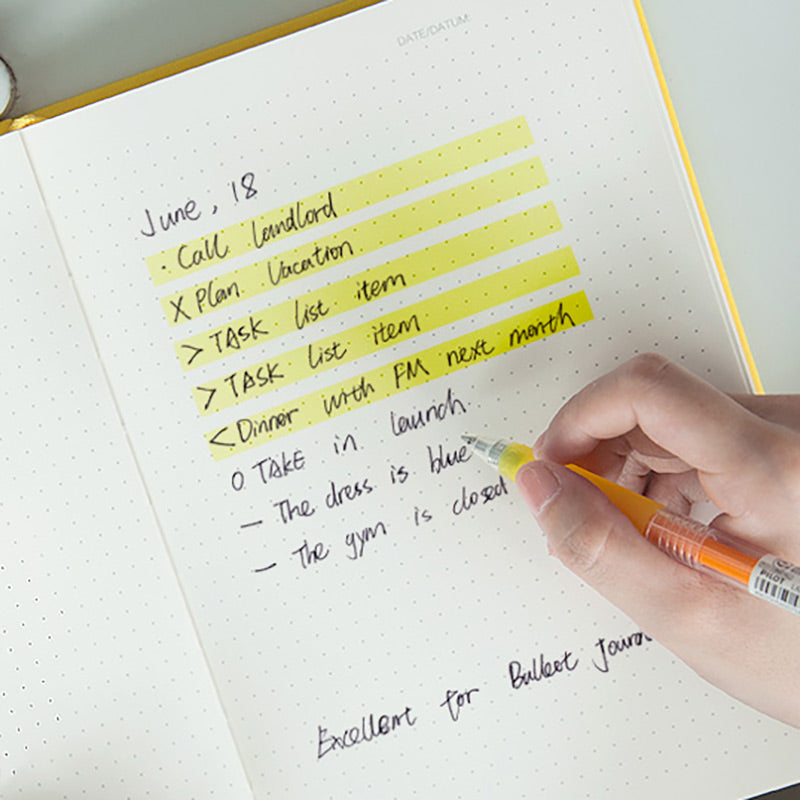 DATE/DATUM:
June, 18
· Call landlord
X Plan Vacation
> TASK list item
> TASK list item
< Dinner with FM next month
O TAKE in launch
— The dress is blue
— The gym is closed
Excellent for Bullet Journ
PILOT